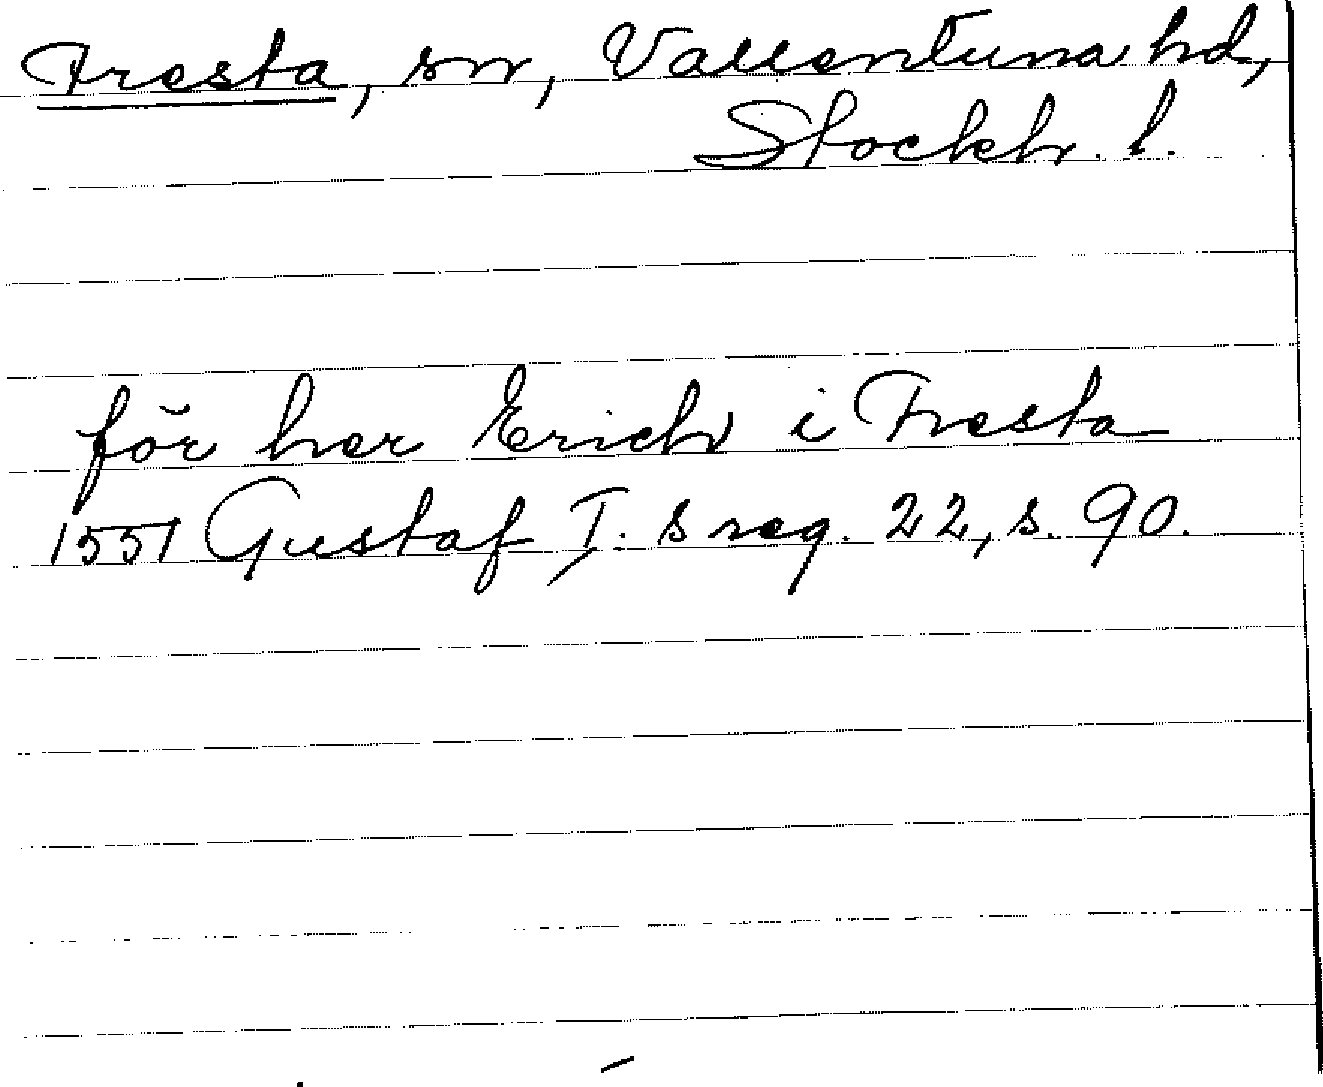 Fresta, sn, Vallentuna hd,
Stockh. l.
för her Erich i Fresta
1551 Gustaf I. s reg. 22, s. 90.